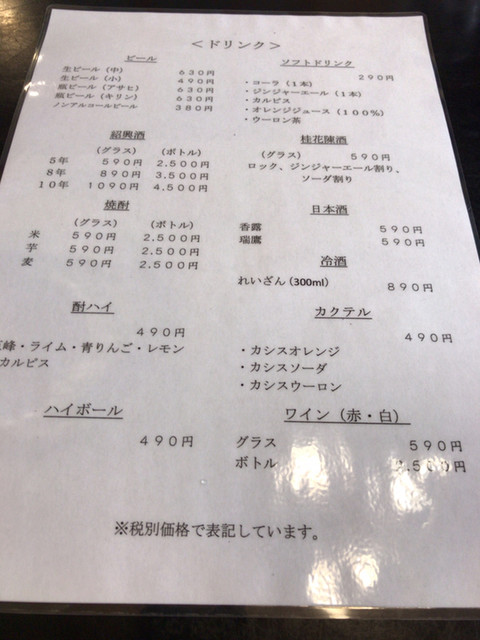 ＜ドリンク＞
ビール
生ビール（中） ６３０円
生ビール（小） ４９０円
瓶ビール（アサヒ） ６３０円
瓶ビール（キリン） ６３０円
ノンアルコールビール ３８０円
ソフトドリンク
２９０円
・コーラ（１本）
・ジンジャーエール（１本）
・カルピス
・オレンジジュース（１００％）
・ウーロン茶
紹興酒
（グラス） （ボトル）
５年 ５９０円 ２.５００円
８年 ８９０円 ３.５００円
１０年 １０９０円 ４.５００円
桂花陳酒
（グラス） ５９０円
ロック、ジンジャーエール割り、
ソーダ割り
焼酎
（グラス） （ボトル）
米 ５９０円 ２.５００円
芋 ５９０円 ２.５００円
麦 ５９０円 ２.５００円
日本酒
香露 ５９０円
瑞鷹 ５９０円
冷酒
れいざん（300ml） ８９０円
酎ハイ
４９０円
峰・ライム・青りんご・レモン
カルピス
カクテル
４９０円
・カシスオレンジ
・カシスソーダ
・カシスウーロン
ハイボール
４９０円
ワイン（赤・白）
グラス ５９０円
ボトル .５００円
※税別価格で表記しています。